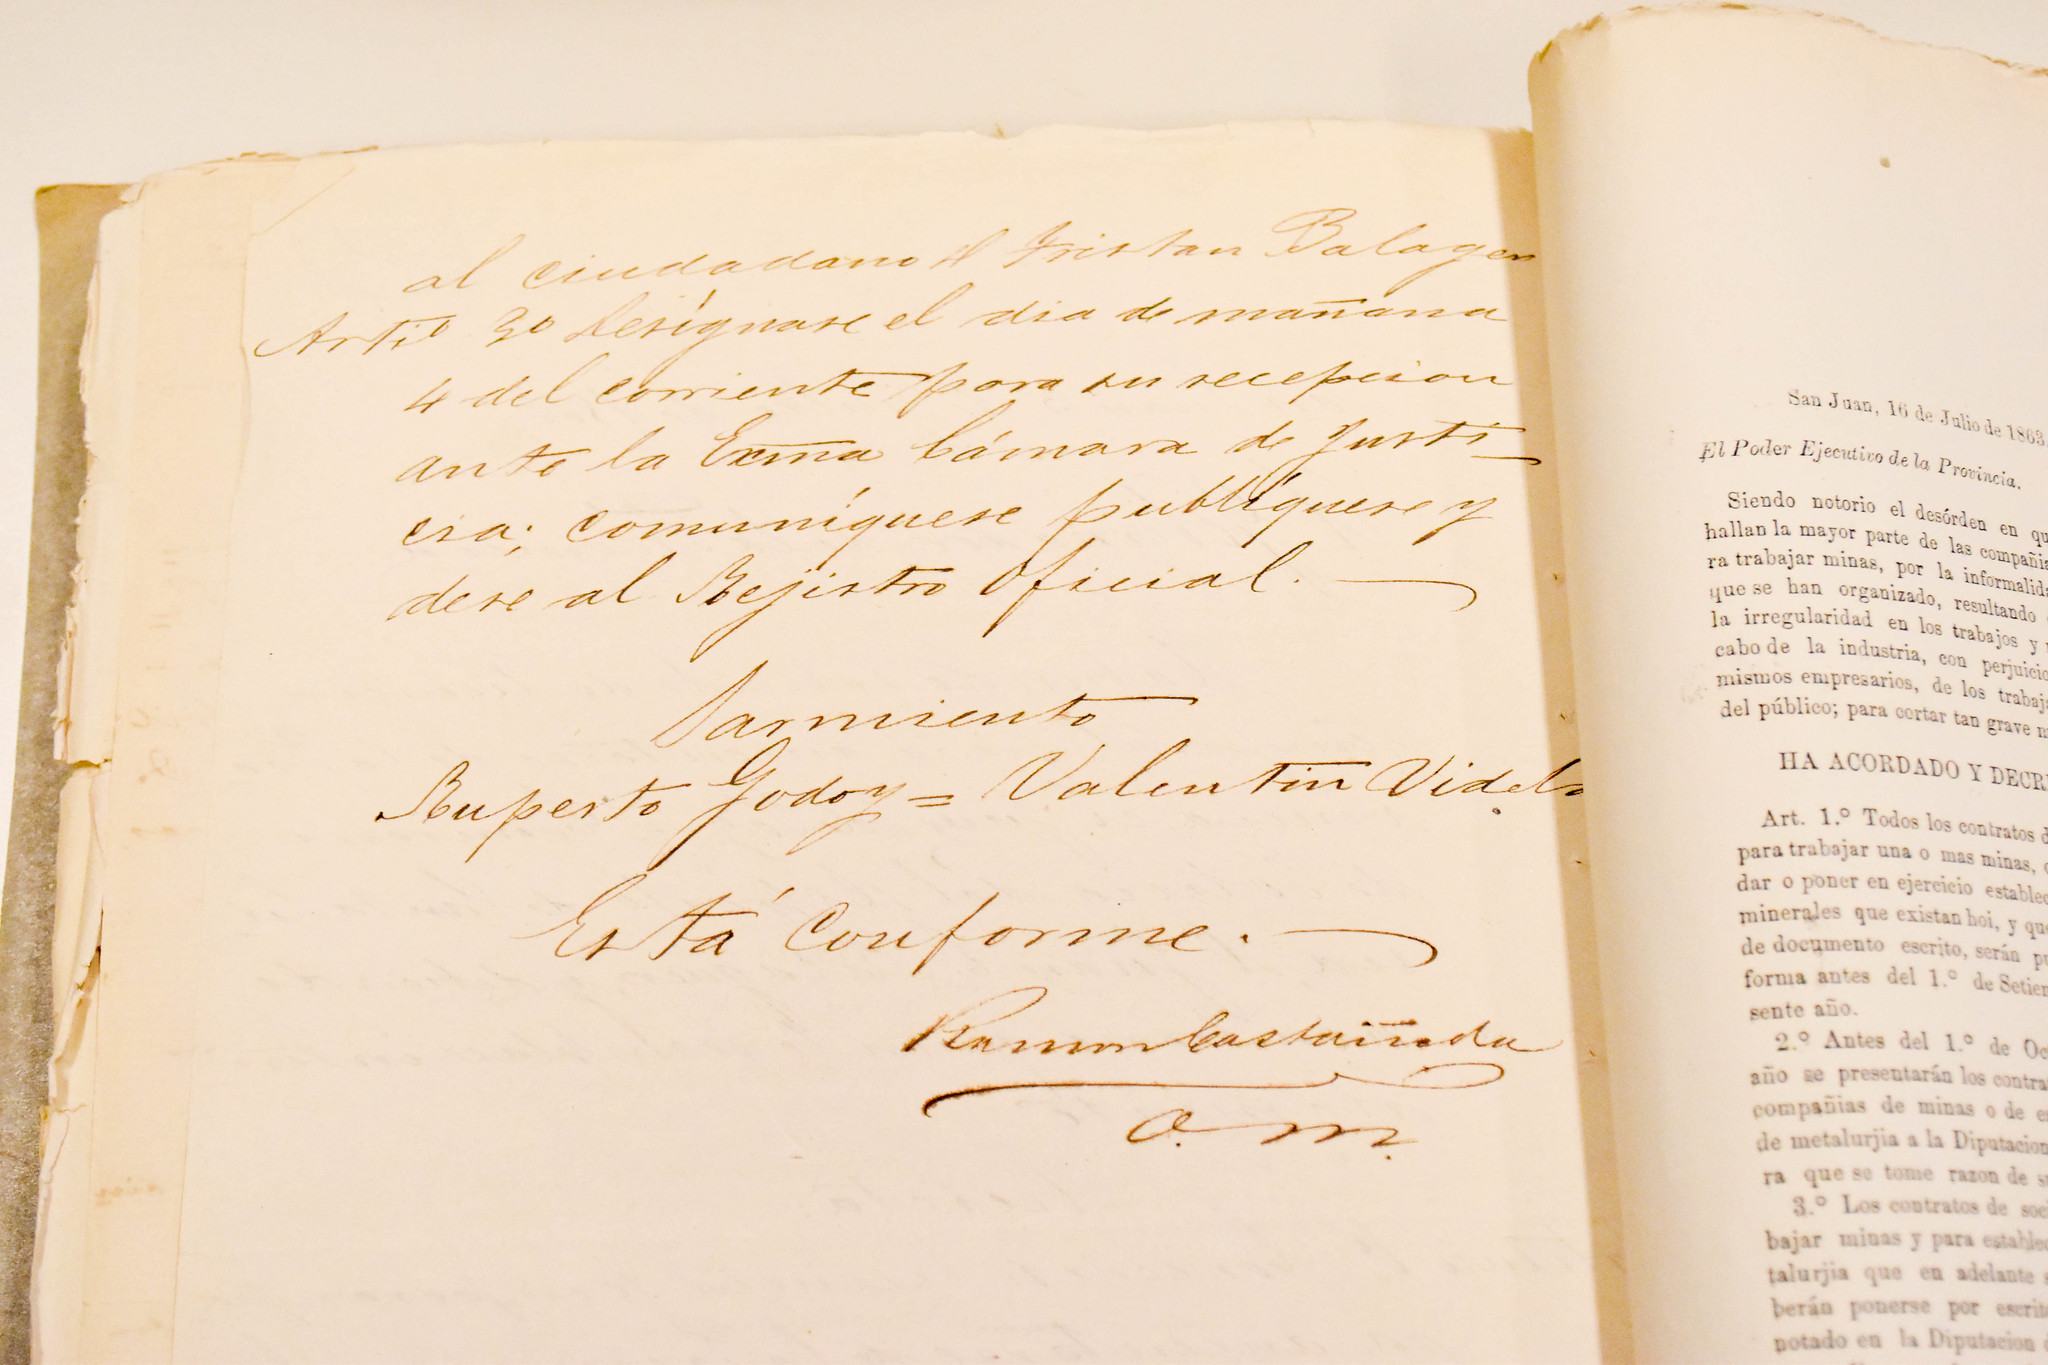 al ciudadano D Tristan Balaguer
Artio 3o Desígnase el dia de mañana
4 del corriente para su recepcion
ante la Exma Cámara de Justi-
cia; comuníquese publíquese y
dese al Rejistro Oficial.
Sarmiento
Ruperto Godoy = Valentin Videla
Está Conforme.
Ramon Castañeda
O. M.
San Juan, 16 de Julio de 1863.
El Poder Ejecutivo de la Provincia.
Siendo notorio el desórden en qu
hallan la mayor parte de las compañia
ra trabajar minas, por la informalida
que se han organizado, resultando
la irregularidad en los trabajos y
cabo de la industria, con perjuicio
mismos empresarios, de los trabaja
del público; para cortar tan grave m
HA ACORDADO Y DECR
Art. 1.º Todos los contratos d
para trabajar una o mas minas,
dar o poner en ejercicio establec
minerales que existan hoi, y que
de documento escrito, serán pu
forma antes del 1.º de Setiem
sente año.
2.º Antes del 1.º de Oc
año se presentarán los contra
compañias de minas o de es
de metalurjia a la Diputacion
ra que se tome razon de s
3.º Los contratos de soci
bajar minas y para establec
talurjia que en adelante s
berán ponerse por escrito
notado en la Diputacion d